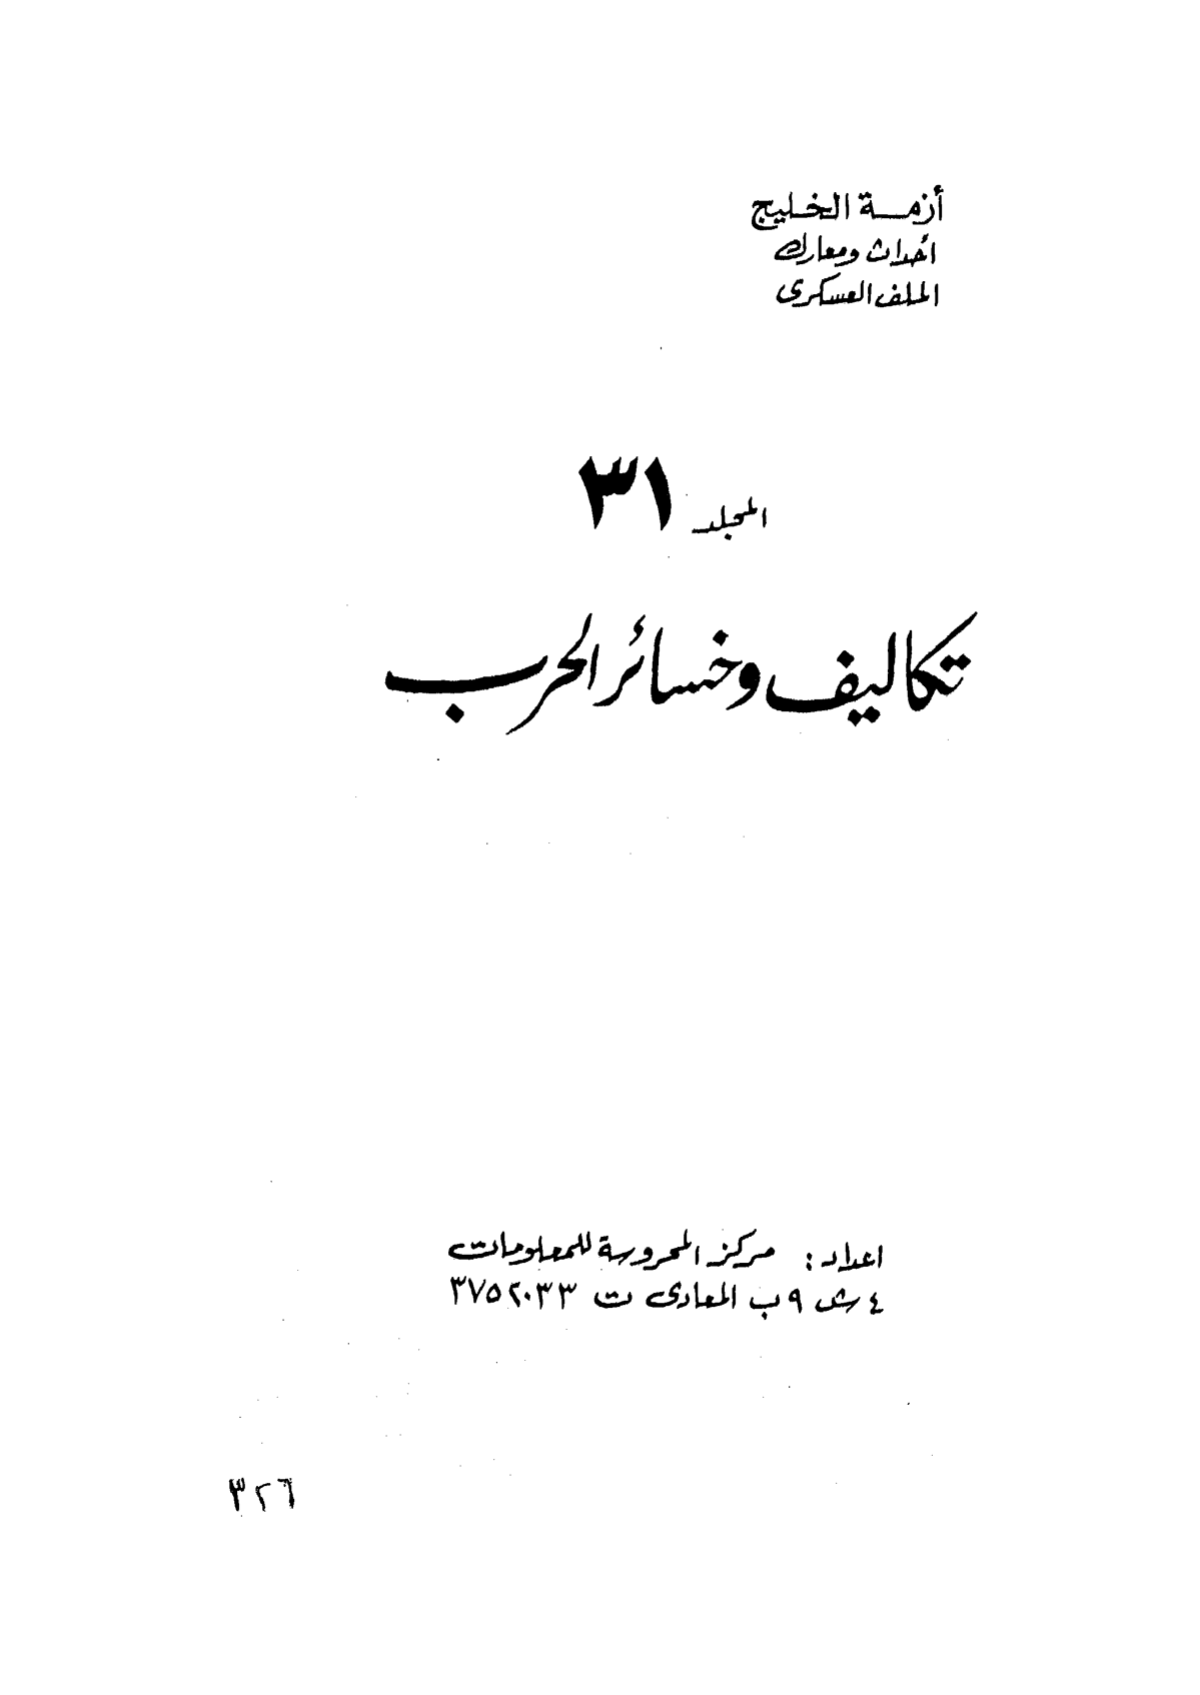 أزمة الخليج
أحداث ومعارك
الملف العسكرى
المجلد ٣١
تكاليف وخسائر الحرب
اعداد : مركز المحروسة للمعلومات
٤ ش ٩ ب المعادى ت ٣٧٥٢٠٣٣
٣٢٦